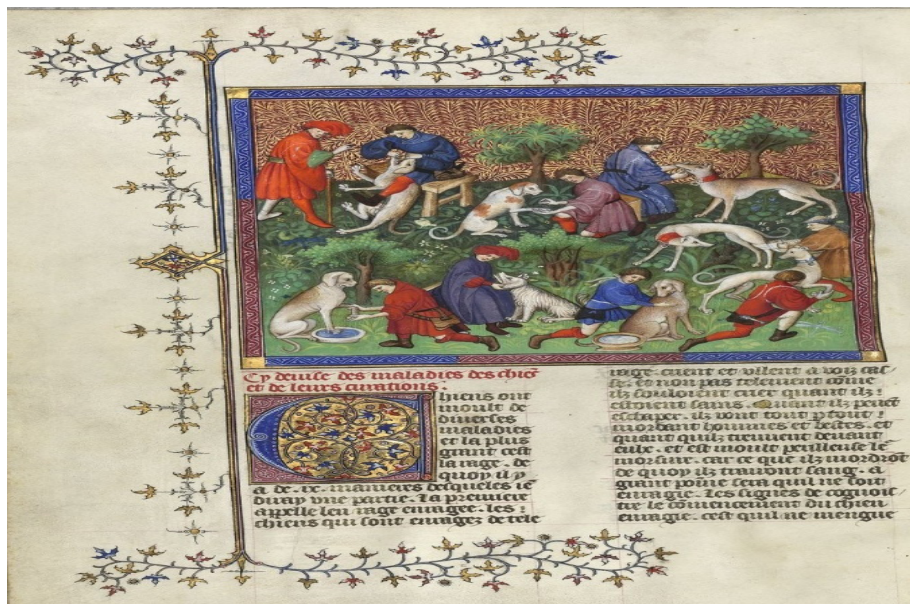 Cy deuise des maladies des chiẽs
et de leurs curations.
Chiens ont
moult de
diuerses
maladies
et la plus
grant cest
la rage. de
quoy il y
a de .ix. manieres desquelles ie
diray vne partie. La premiere
appelle len rage enragee. les
chiens qui sont enragez de tele
rage. crient et vlent a voiz
et non pas telement come
ilz souloient crier quant ilz
estoient sains. Quant ilz peuẽt
eschaper. ilz vont tout ꝑtout
mordant hommes et bestes. et
quant quilz treuuent deuant
eulx. et est moult perilleuse le
morsure. car ce que ilz mordrõt
de quoy ilz trairont sang. a
grant poine sera quil ne soit
enragie. Les signes de cognois
tre le cõmencement du chien
enragie. cest quil ne mengue